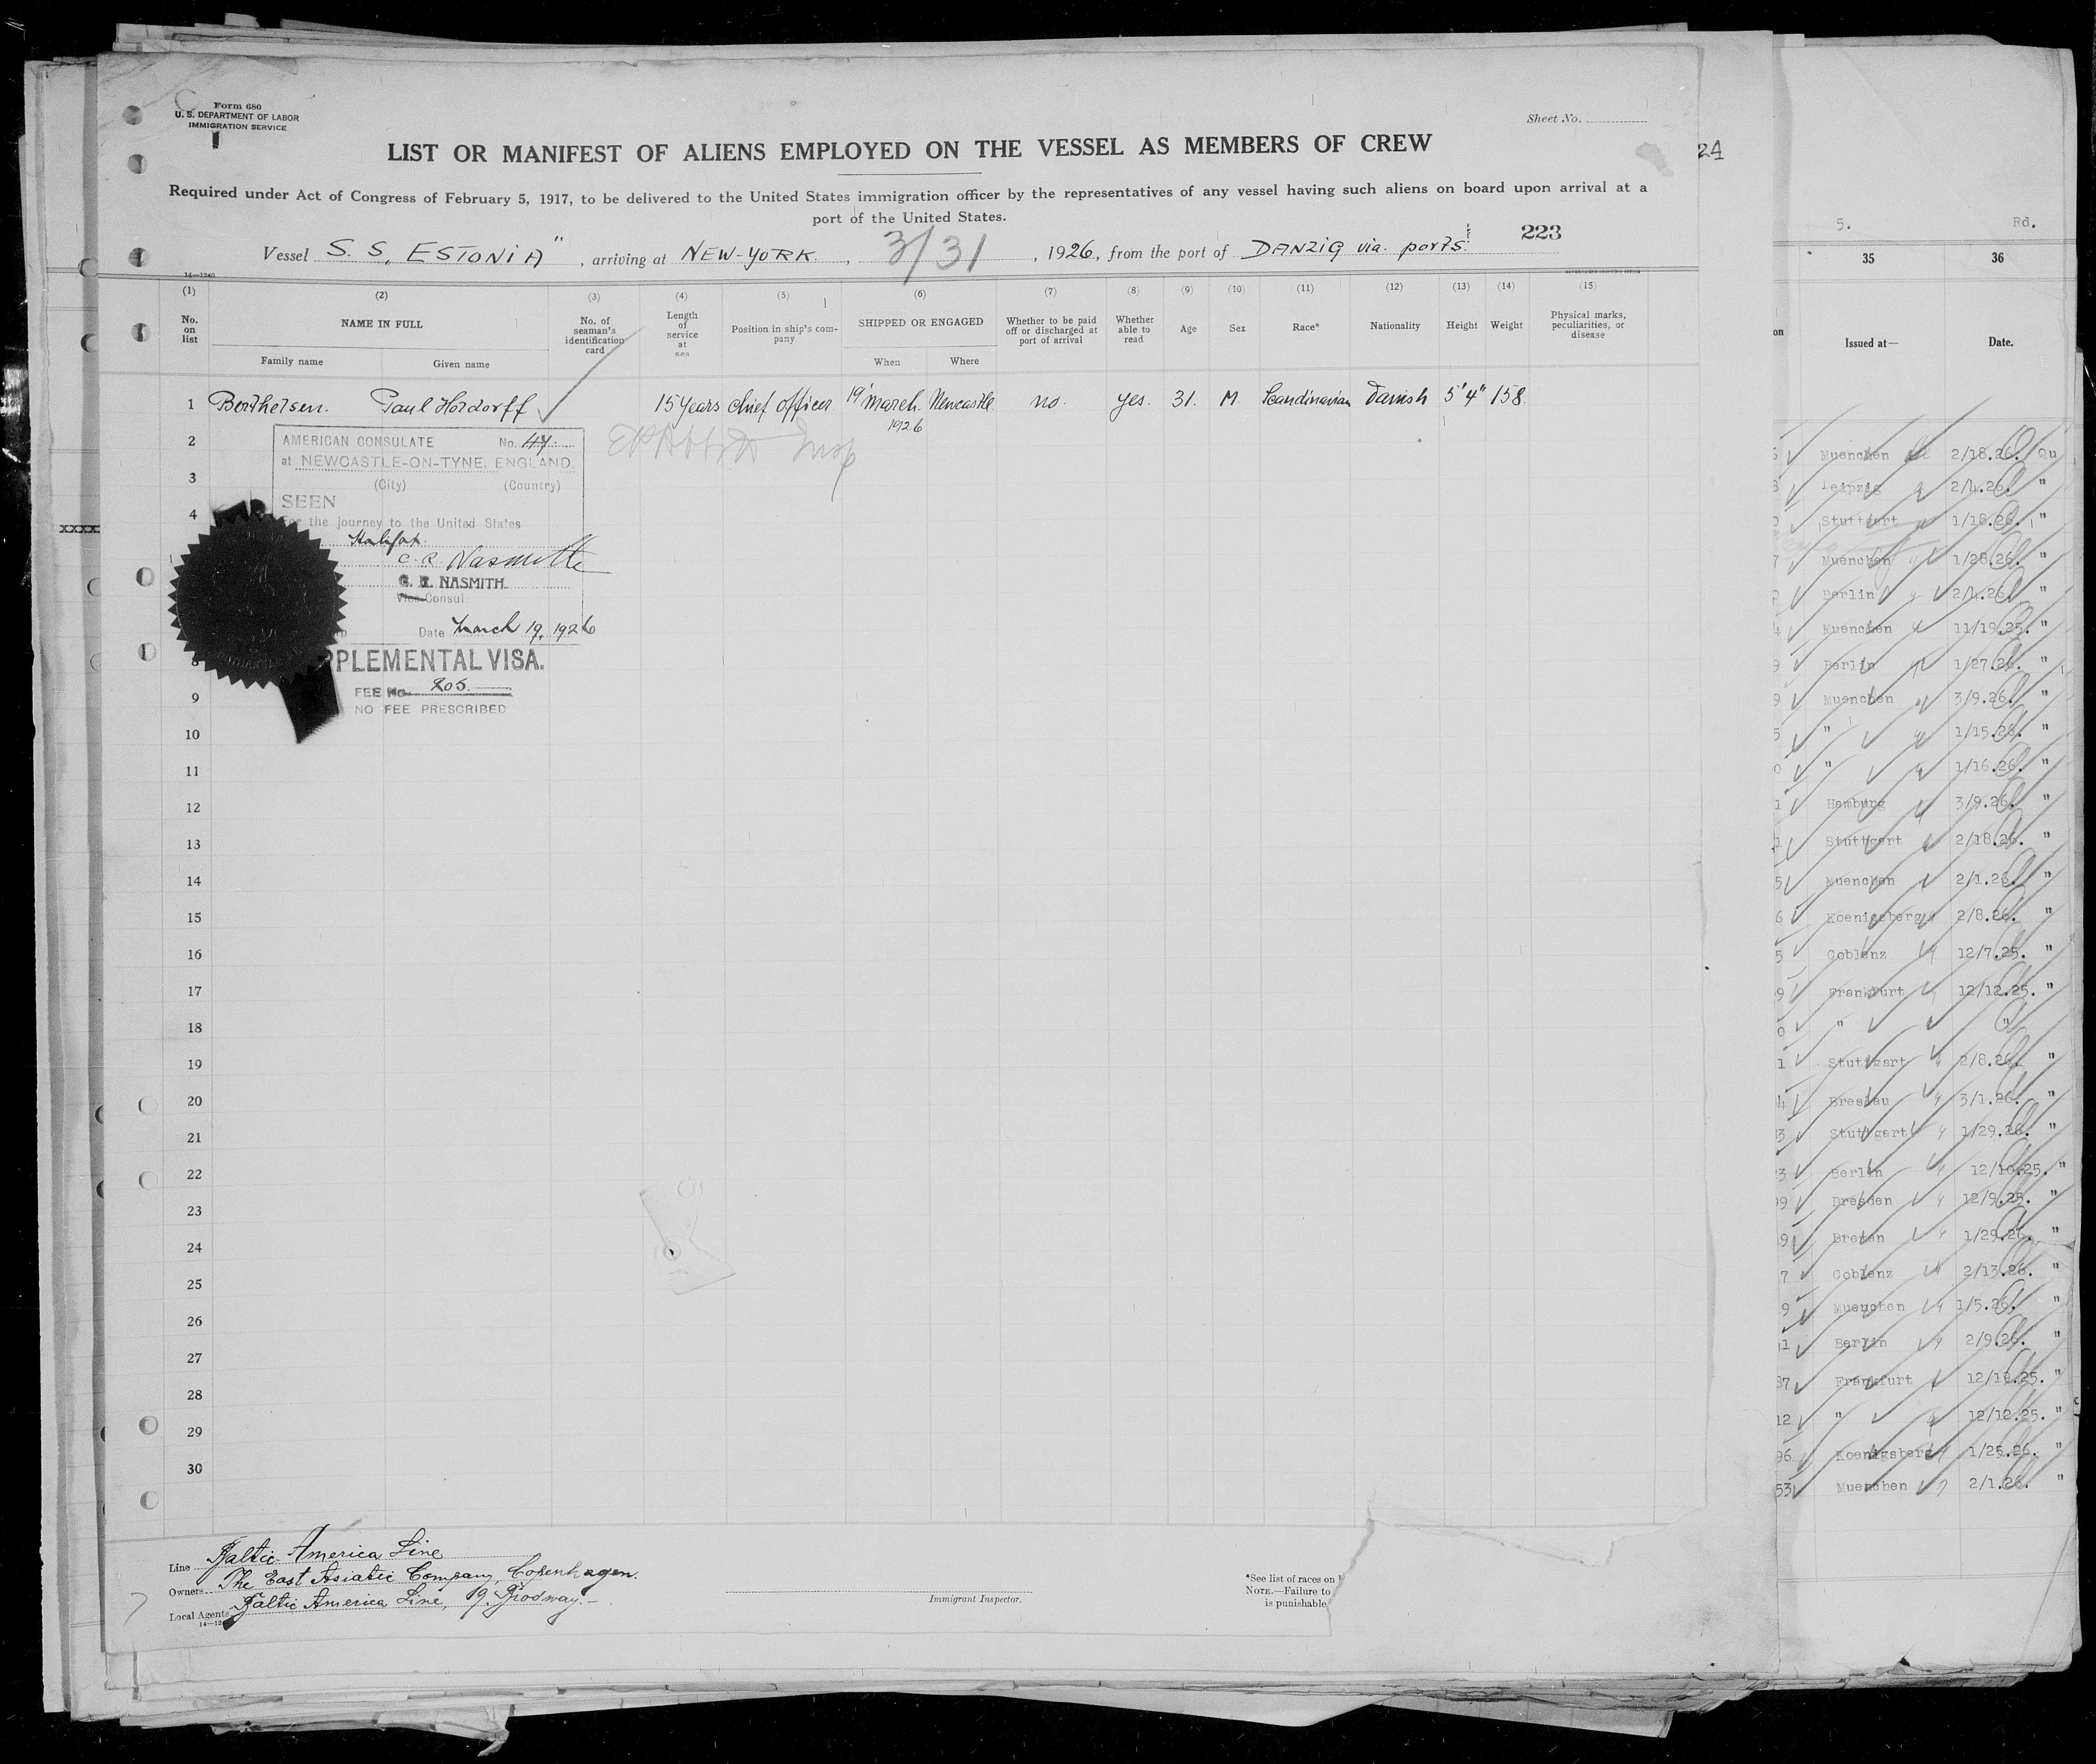 Form 680
U. S. DEPARTMENT OF LABOR
IMMIGRATION SERVICE
Sheet No.
LIST OR MANIFEST OF ALIENS EMPLOYED ON THE VESSEL AS MEMBERS OF CREW
24
Required under Act of Congress of February 5, 1917, to be delivered to the United States immigration officer by the representatives of any vessel having such aliens on board upon arrival at a
port of the United States.
223
Vessel S. S. ESTONIA", arriving at NEW-YORK, 3/31, 1926, from the port of DANZIG via ports.
14—1240
(1) (2) (3) (4) (5) (6) (7) (8) (9) (10) (11) (12) (13) (14) (15)
No. on list NAME IN FULL Family name Given name No. of seaman's identification card Length of service at sea Position in ship's company SHIPPED OR ENGAGED When Where Whether to be paid off or discharged at port of arrival Whether able to read Age Sex Race* Nationality Height Weight Physical marks, peculiarities, or disease
1 Berthelsen. Paul Hordorff 15 Years chief officer 19' march 1926 Newcastle no. yes. 31. M. Scandinavian Danish 5'4" 158.
2
3
4
8
9
10
11
12
13
14
15
16
17
18
19
20
21
22
23
24
25
26
27
28
29
30
AMERICAN CONSULATE No. 44
at NEWCASTLE-ON-TYNE, ENGLAND.
(City) (Country)
SEEN
For the journey to the United States
Halifax
C. R. Nasmith
C. R. NASMITH.
Vice Consul
Date March 19, 1926
PPLEMENTAL VISA.
FEE No. 205.
NO FEE PRESCRIBED
Line Baltic America Line
Owners The East Asiatic Company, Copenhagen.
Local Agents Baltic America Line, 9. Brodway.
Immigrant Inspector.
*See list of races on
NOTE.—Failure to
is punishable
5. Rd.
35 36
Issued at— Date.
Muenchen 2/18.26. Qu
Leipzig 2/4.26. "
Stuttgart 1/18.26. "
7 Muenchen 1/28.26. "
Berlin 2/4.26. "
4 Muenchen 11/19.25. "
9 Berlin 1/27.26. "
9 Muenchen 3/9.26. "
5 " 1/15.26. "
0 " 1/16.26. "
1 Hamburg 3/9.26. "
1 Stuttgart 2/18.26. "
5 Muenchen 2/1.26. "
6 Koenigsberg 2/8.26. "
5 Coblenz 12/7.25. "
9 Frankfurt 12/12.25. "
0 " "
1 Stuttgart 2/8.26. "
4 Breslau 3/1.26. "
3 Stuttgart 1/29.26. "
3 Berlin 12/10.25. "
99 Dresden 12/9.25. "
9 Bremen 1/29.26. "
7 Coblenz 2/13.26. "
9 Muenchen 1/5.26. "
1 Berlin 2/9.26. "
37 Frankfurt 12/12.25. "
12 " 12/12.25. "
96 Koenigsberg 1/25.26. "
53 Muenchen 2/1.26. "